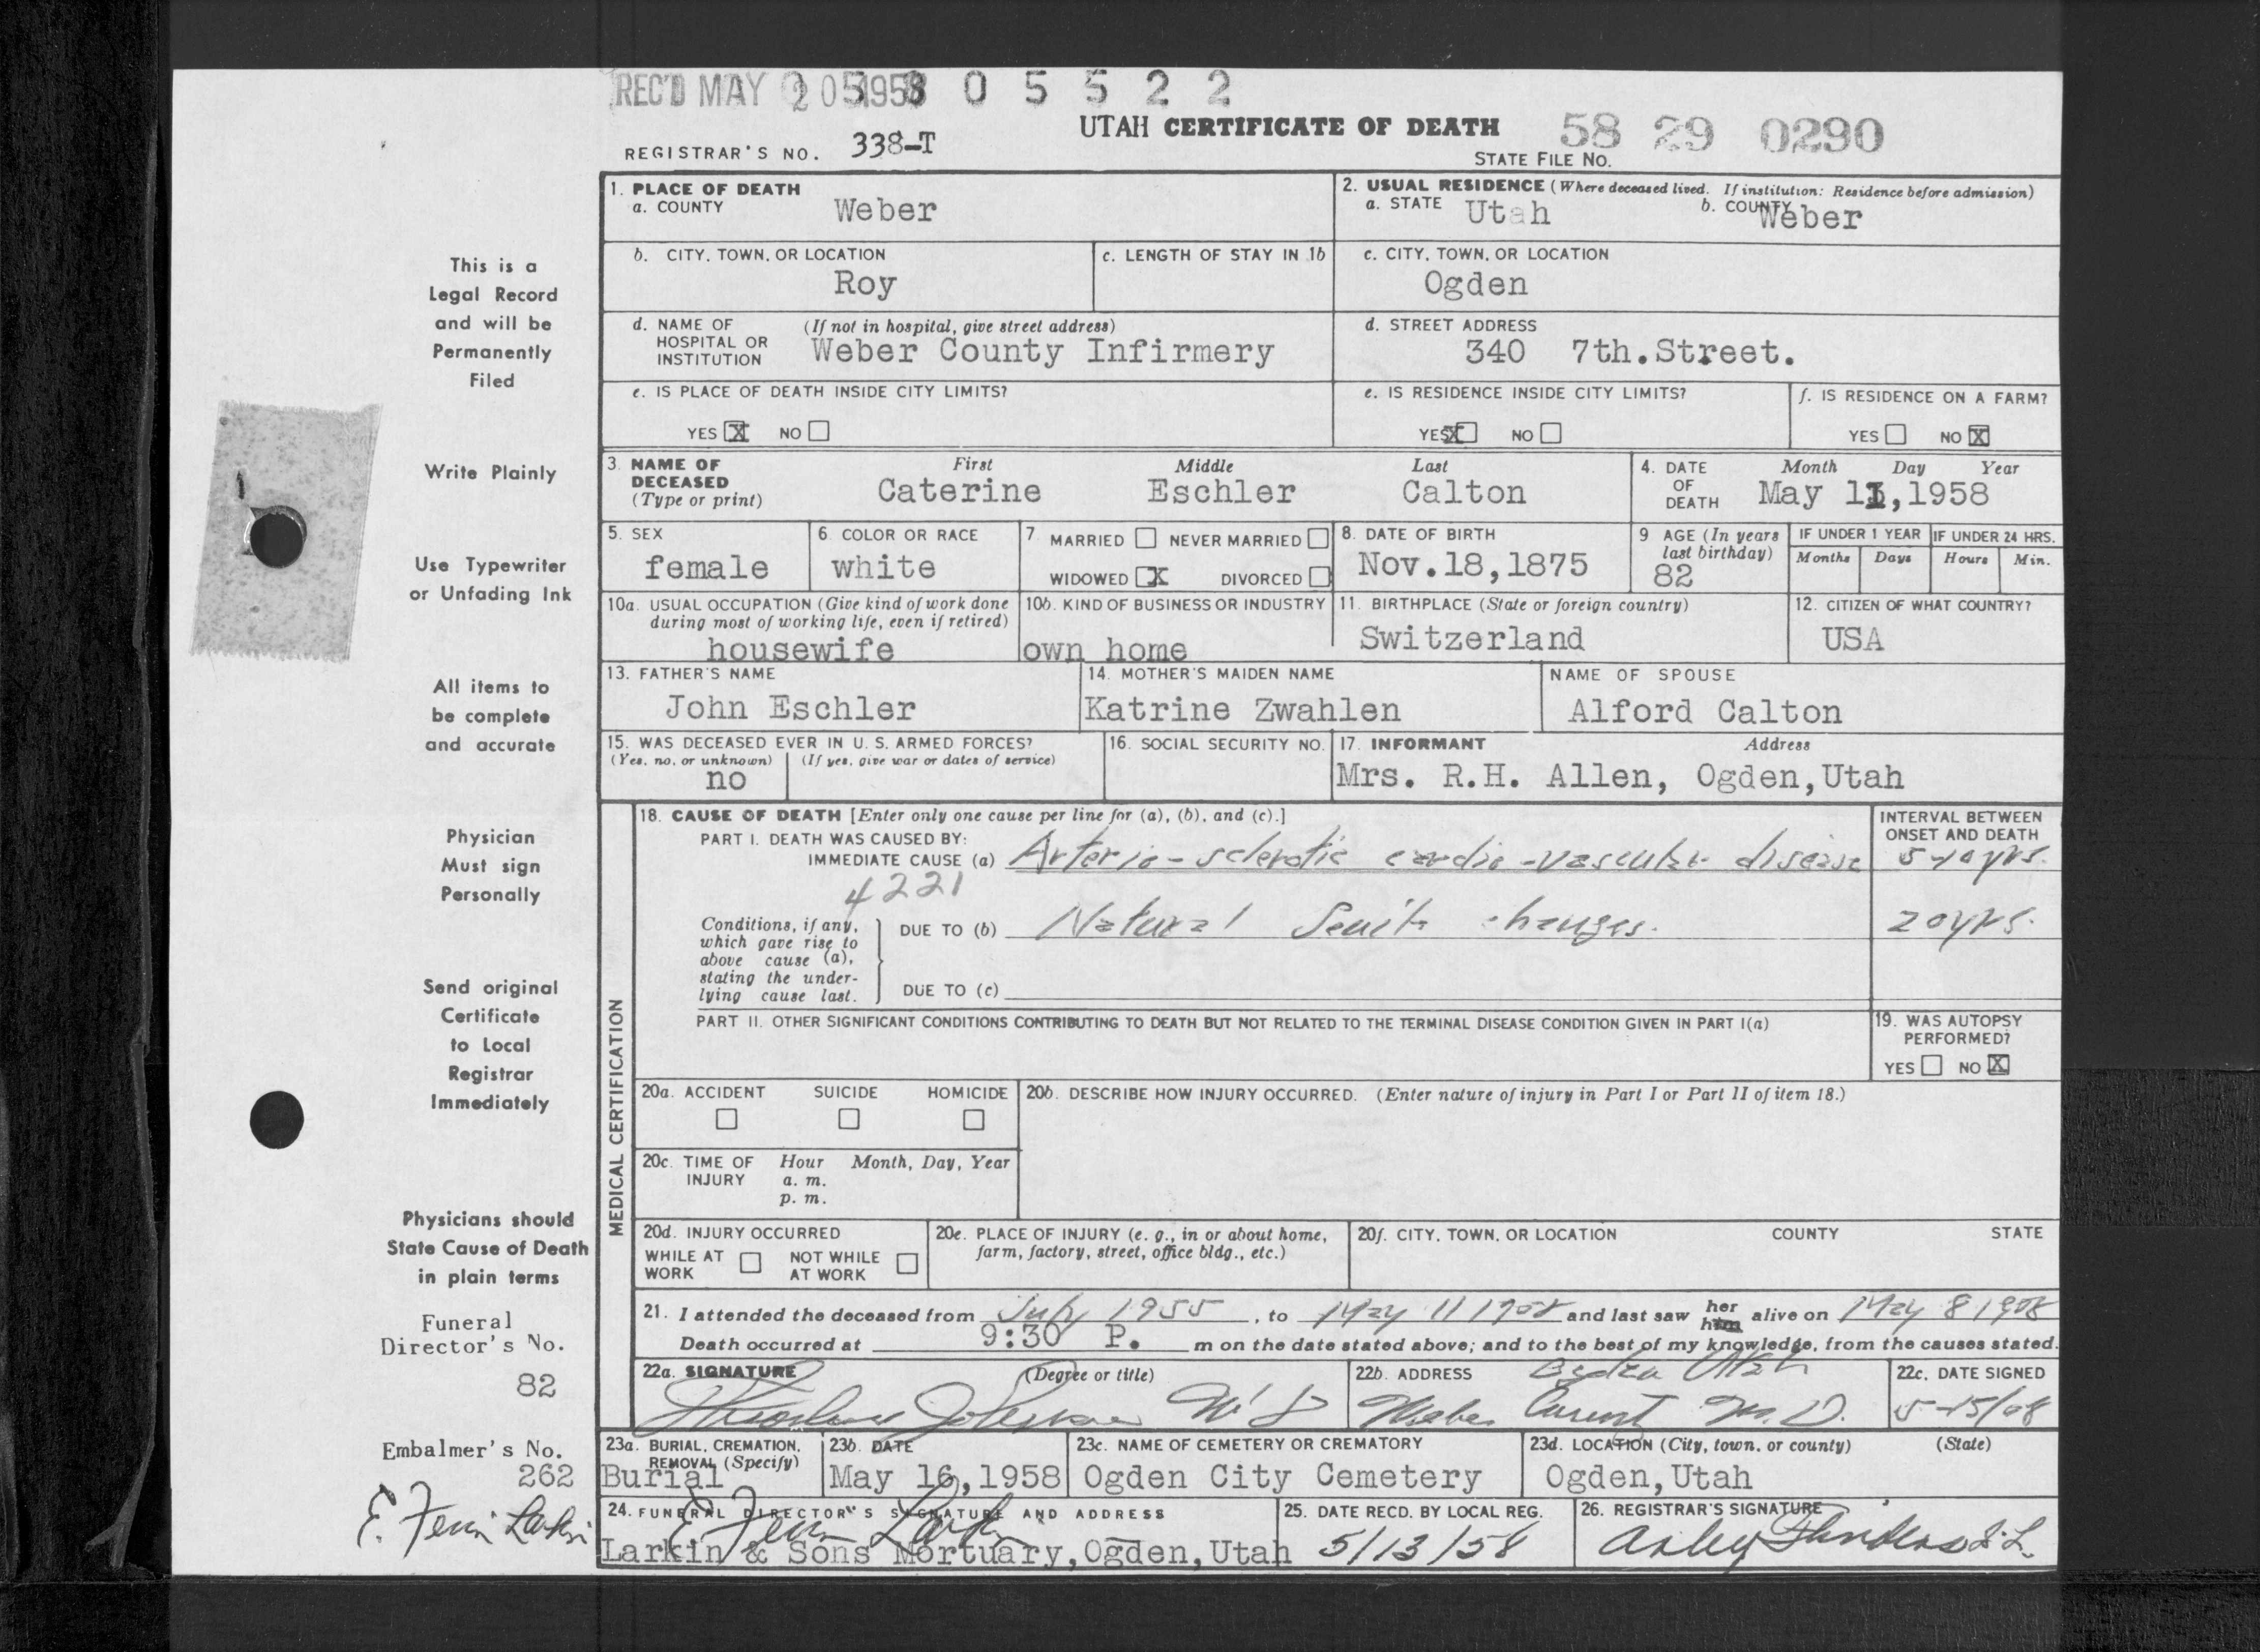 REC'D MAY 20 1958 0 5 5 2 2
UTAH CERTIFICATE OF DEATH 58 29 0290
REGISTRAR'S NO. 338-T
STATE FILE NO.
1. PLACE OF DEATH
a. COUNTY Weber
2. USUAL RESIDENCE (Where deceased lived. If institution: Residence before admission)
a. STATE Utah b. COUNTY Weber
b. CITY, TOWN, OR LOCATION
Roy
c. LENGTH OF STAY IN 1b
c. CITY, TOWN, OR LOCATION
Ogden
d. NAME OF HOSPITAL OR INSTITUTION (If not in hospital, give street address)
Weber County Infirmery
d. STREET ADDRESS
340 7th.Street.
e. IS PLACE OF DEATH INSIDE CITY LIMITS?
YES X NO
e. IS RESIDENCE INSIDE CITY LIMITS?
YES X NO
f. IS RESIDENCE ON A FARM?
YES NO X
3. NAME OF DECEASED (Type or print)
First Middle Last
Caterine Eschler Calton
4. DATE OF DEATH
Month Day Year
May 11,1958
5. SEX
female
6. COLOR OR RACE
white
7. MARRIED NEVER MARRIED
WIDOWED X DIVORCED
8. DATE OF BIRTH
Nov.18,1875
9 AGE (In years last birthday)
82
IF UNDER 1 YEAR
Months Days
IF UNDER 24 HRS.
Hours Min.
10a. USUAL OCCUPATION (Give kind of work done during most of working life, even if retired)
housewife
10b. KIND OF BUSINESS OR INDUSTRY
own home
11. BIRTHPLACE (State or foreign country)
Switzerland
12. CITIZEN OF WHAT COUNTRY?
USA
13. FATHER'S NAME
John Eschler
14. MOTHER'S MAIDEN NAME
Katrine Zwahlen
NAME OF SPOUSE
Alford Calton
15. WAS DECEASED EVER IN U. S. ARMED FORCES?
(Yes, no, or unknown) (If yes, give war or dates of service)
no
16. SOCIAL SECURITY NO.
17. INFORMANT Address
Mrs. R.H. Allen, Ogden,Utah
MEDICAL CERTIFICATION
18. CAUSE OF DEATH [Enter only one cause per line for (a), (b), and (c).]
INTERVAL BETWEEN ONSET AND DEATH
PART I. DEATH WAS CAUSED BY:
IMMEDIATE CAUSE (a) Arterio-sclerotic cardio-vascular disease 5-10 yrs.
4221
Conditions, if any, which gave rise to above cause (a), stating the underlying cause last.
DUE TO (b) Natural Senile changes. 20 yrs.
DUE TO (c)
PART II. OTHER SIGNIFICANT CONDITIONS CONTRIBUTING TO DEATH BUT NOT RELATED TO THE TERMINAL DISEASE CONDITION GIVEN IN PART I(a)
19. WAS AUTOPSY PERFORMED?
YES NO X
20a. ACCIDENT SUICIDE HOMICIDE
20b. DESCRIBE HOW INJURY OCCURRED. (Enter nature of injury in Part I or Part II of item 18.)
20c. TIME OF INJURY Hour Month, Day, Year
a. m.
p. m.
20d. INJURY OCCURRED
WHILE AT WORK NOT WHILE AT WORK
20e. PLACE OF INJURY (e. g., in or about home, farm, factory, street, office bldg., etc.)
20f. CITY, TOWN, OR LOCATION COUNTY STATE
21. I attended the deceased from July 1955, to May 11 1958 and last saw her him alive on May 8 1958
Death occurred at 9:30 P. m on the date stated above; and to the best of my knowledge, from the causes stated.
22a. SIGNATURE (Degree or title)
22b. ADDRESS
22c. DATE SIGNED
5-15/58
23a. BURIAL, CREMATION, REMOVAL (Specify)
Burial
23b. DATE
May 16,1958
23c. NAME OF CEMETERY OR CREMATORY
Ogden City Cemetery
23d. LOCATION (City, town, or county) (State)
Ogden,Utah
24. FUNERAL DIRECTOR'S SIGNATURE AND ADDRESS
Larkin & Sons Mortuary,Ogden,Utah
25. DATE RECD. BY LOCAL REG.
5/13/58
26. REGISTRAR'S SIGNATURE
This is a
Legal Record
and will be
Permanently
Filed
Write Plainly
Use Typewriter
or Unfading Ink
All items to
be complete
and accurate
Physician
Must sign
Personally
Send original
Certificate
to Local
Registrar
Immediately
Physicians should
State Cause of Death
in plain terms
Funeral
Director's No.
82
Embalmer's No.
262